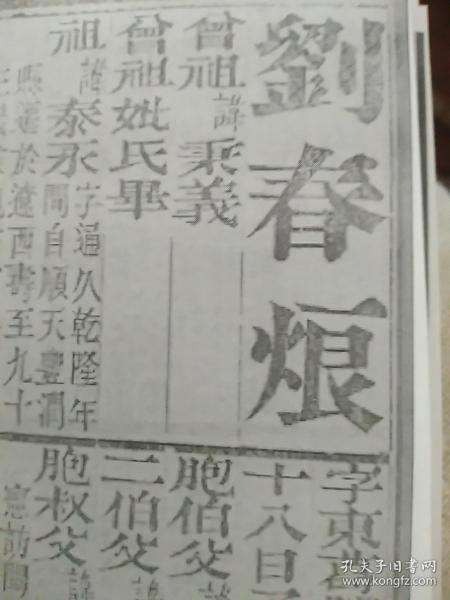 劉春烺
曾祖諱秉義
曾祖妣氏畢
祖諱泰永字通久乾隆年
間自順天豐潤
縣遷於遼西壽至九十
字東
十八日
胞伯父諱
二伯父諱
胞叔父諱
憲訪聞
孔夫子旧书网
kongfz.com